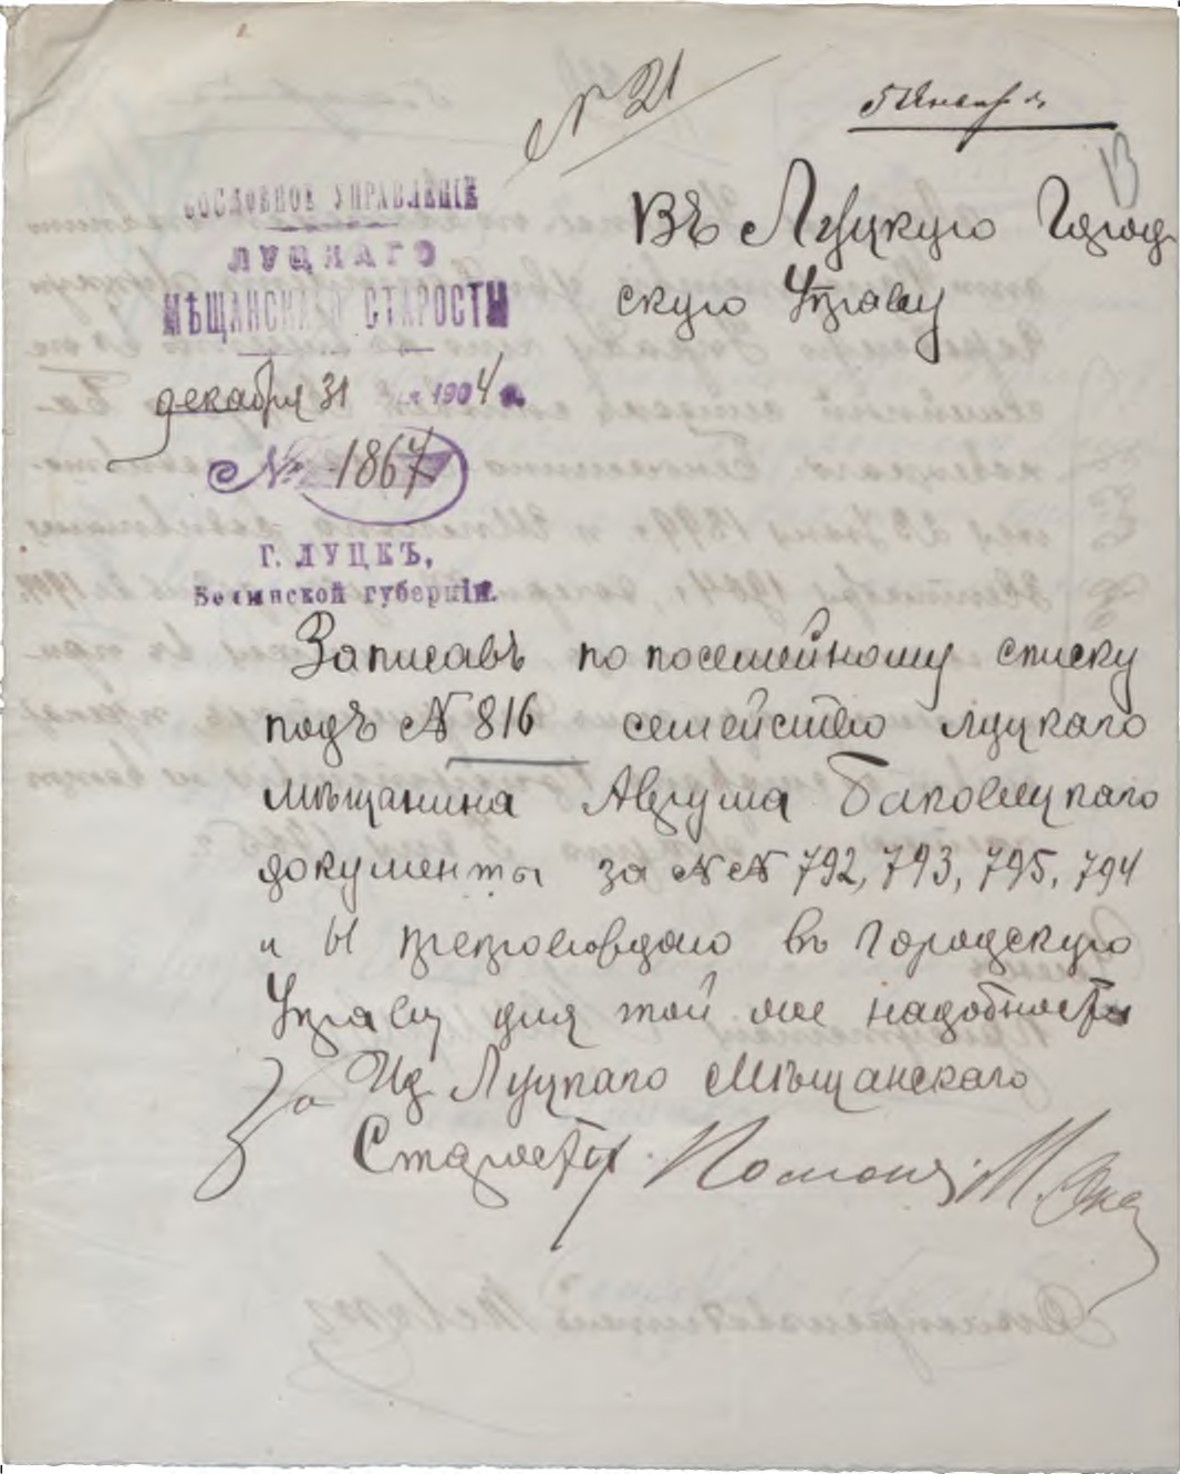 № 21
5 Января
13
СОСЛОВНОЕ УПРАВЛЕНІЕ
ЛУЦКАГО
МѢЩАНСКАГО СТАРОСТЫ
декабря 31 дня 1904 г.
№ 1867
Г. ЛУЦКЪ,
Волынской губерніи.
Въ Луцкую Город
скую Управу
Записавъ по посемейному списку
подъ № 816 семейство луцкаго
мѣщанина Аврума Баковецкаго
документы за №№ 792, 793, 795, 794
и 61 препровождаю въ Городскую
Управу для той же надобности
За Луцкаго Мѣщанскаго
Старосты